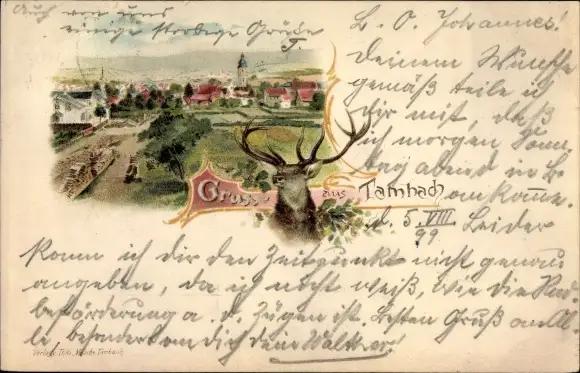 Auch von uns
einige herzliche Grüße
T.
L. O. Johannes!
Deinem Wunsche
gemäß teile ich
dir mit, daß
ich morgen Sonn-
tag abend in L.
ankomme.
Gruss aus Tambach
d. 5. VIII
99
Leider
kann ich dir den Zeitpunkt nicht genau
angeben, da ich nicht weiß, wie die Rad-
beförderung a. d. Zügen ist. Besten Gruß an All-
le, besonders an Dich dein Walther!
Verlag v. Tambach